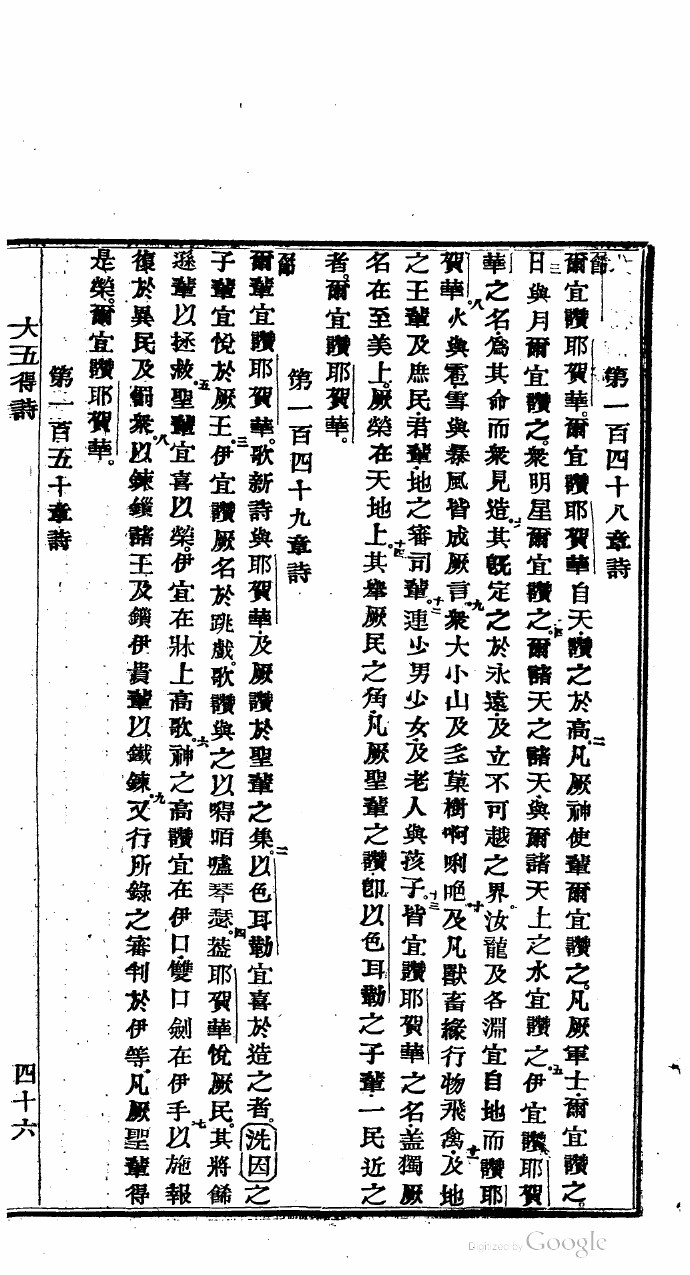 第一百四十八章詩
節
爾宜讚耶賀華。爾宜讚耶賀華自天讚之於高。二凡厥神使輩爾宜讚之。凡厥軍士爾宜讚之。
三日與月爾宜讚之。衆明星爾宜讚之。四爾諸天之諸天與爾諸天上之水宜讚之。五伊宜讚耶賀
華之名爲其命而衆見造。六其旣定之於永遠及立不可越之界。七汝龍及各淵宜自地而讚耶
賀華。八火與雹雪與暴風皆成厥言。九衆大小山及多菓樹啊唎吧及凡獸畜緣行物飛禽及地
之王輩及庶民君輩地之審司輩。十二連少男少女及老人與孩子。十三皆宜讚耶賀華之名蓋獨厥
名在至美上。厥榮在天地上。十四其舉厥民之角凡厥聖輩之讚卽以色耳勒之子輩一民近之
者。爾宜讚耶賀華。
第一百四十九章詩
節
爾輩宜讚耶賀華。歌新詩與耶賀華及厥讚於聖輩之集。二以色耳勒宜喜於造之者。洗因之
子輩宜悅於厥王。三伊宜讚厥名於跳戲。歌讚與之以琴瑟。四蓋耶賀華悅厥民。其將
遜輩以拯救。五聖輩宜喜以榮。伊宜在牀上高歌。六神之高讚宜在伊口雙口劍在伊手。七以施報
復於異民及罰衆。八以鍊鎖諸王及鎖伊貴輩以鐵鍊。九又行所錄之審判於伊等。凡厥聖輩得
是榮。爾宜讚耶賀華。
第一百五十章詩
大五得詩
四十六
Digitized by Google